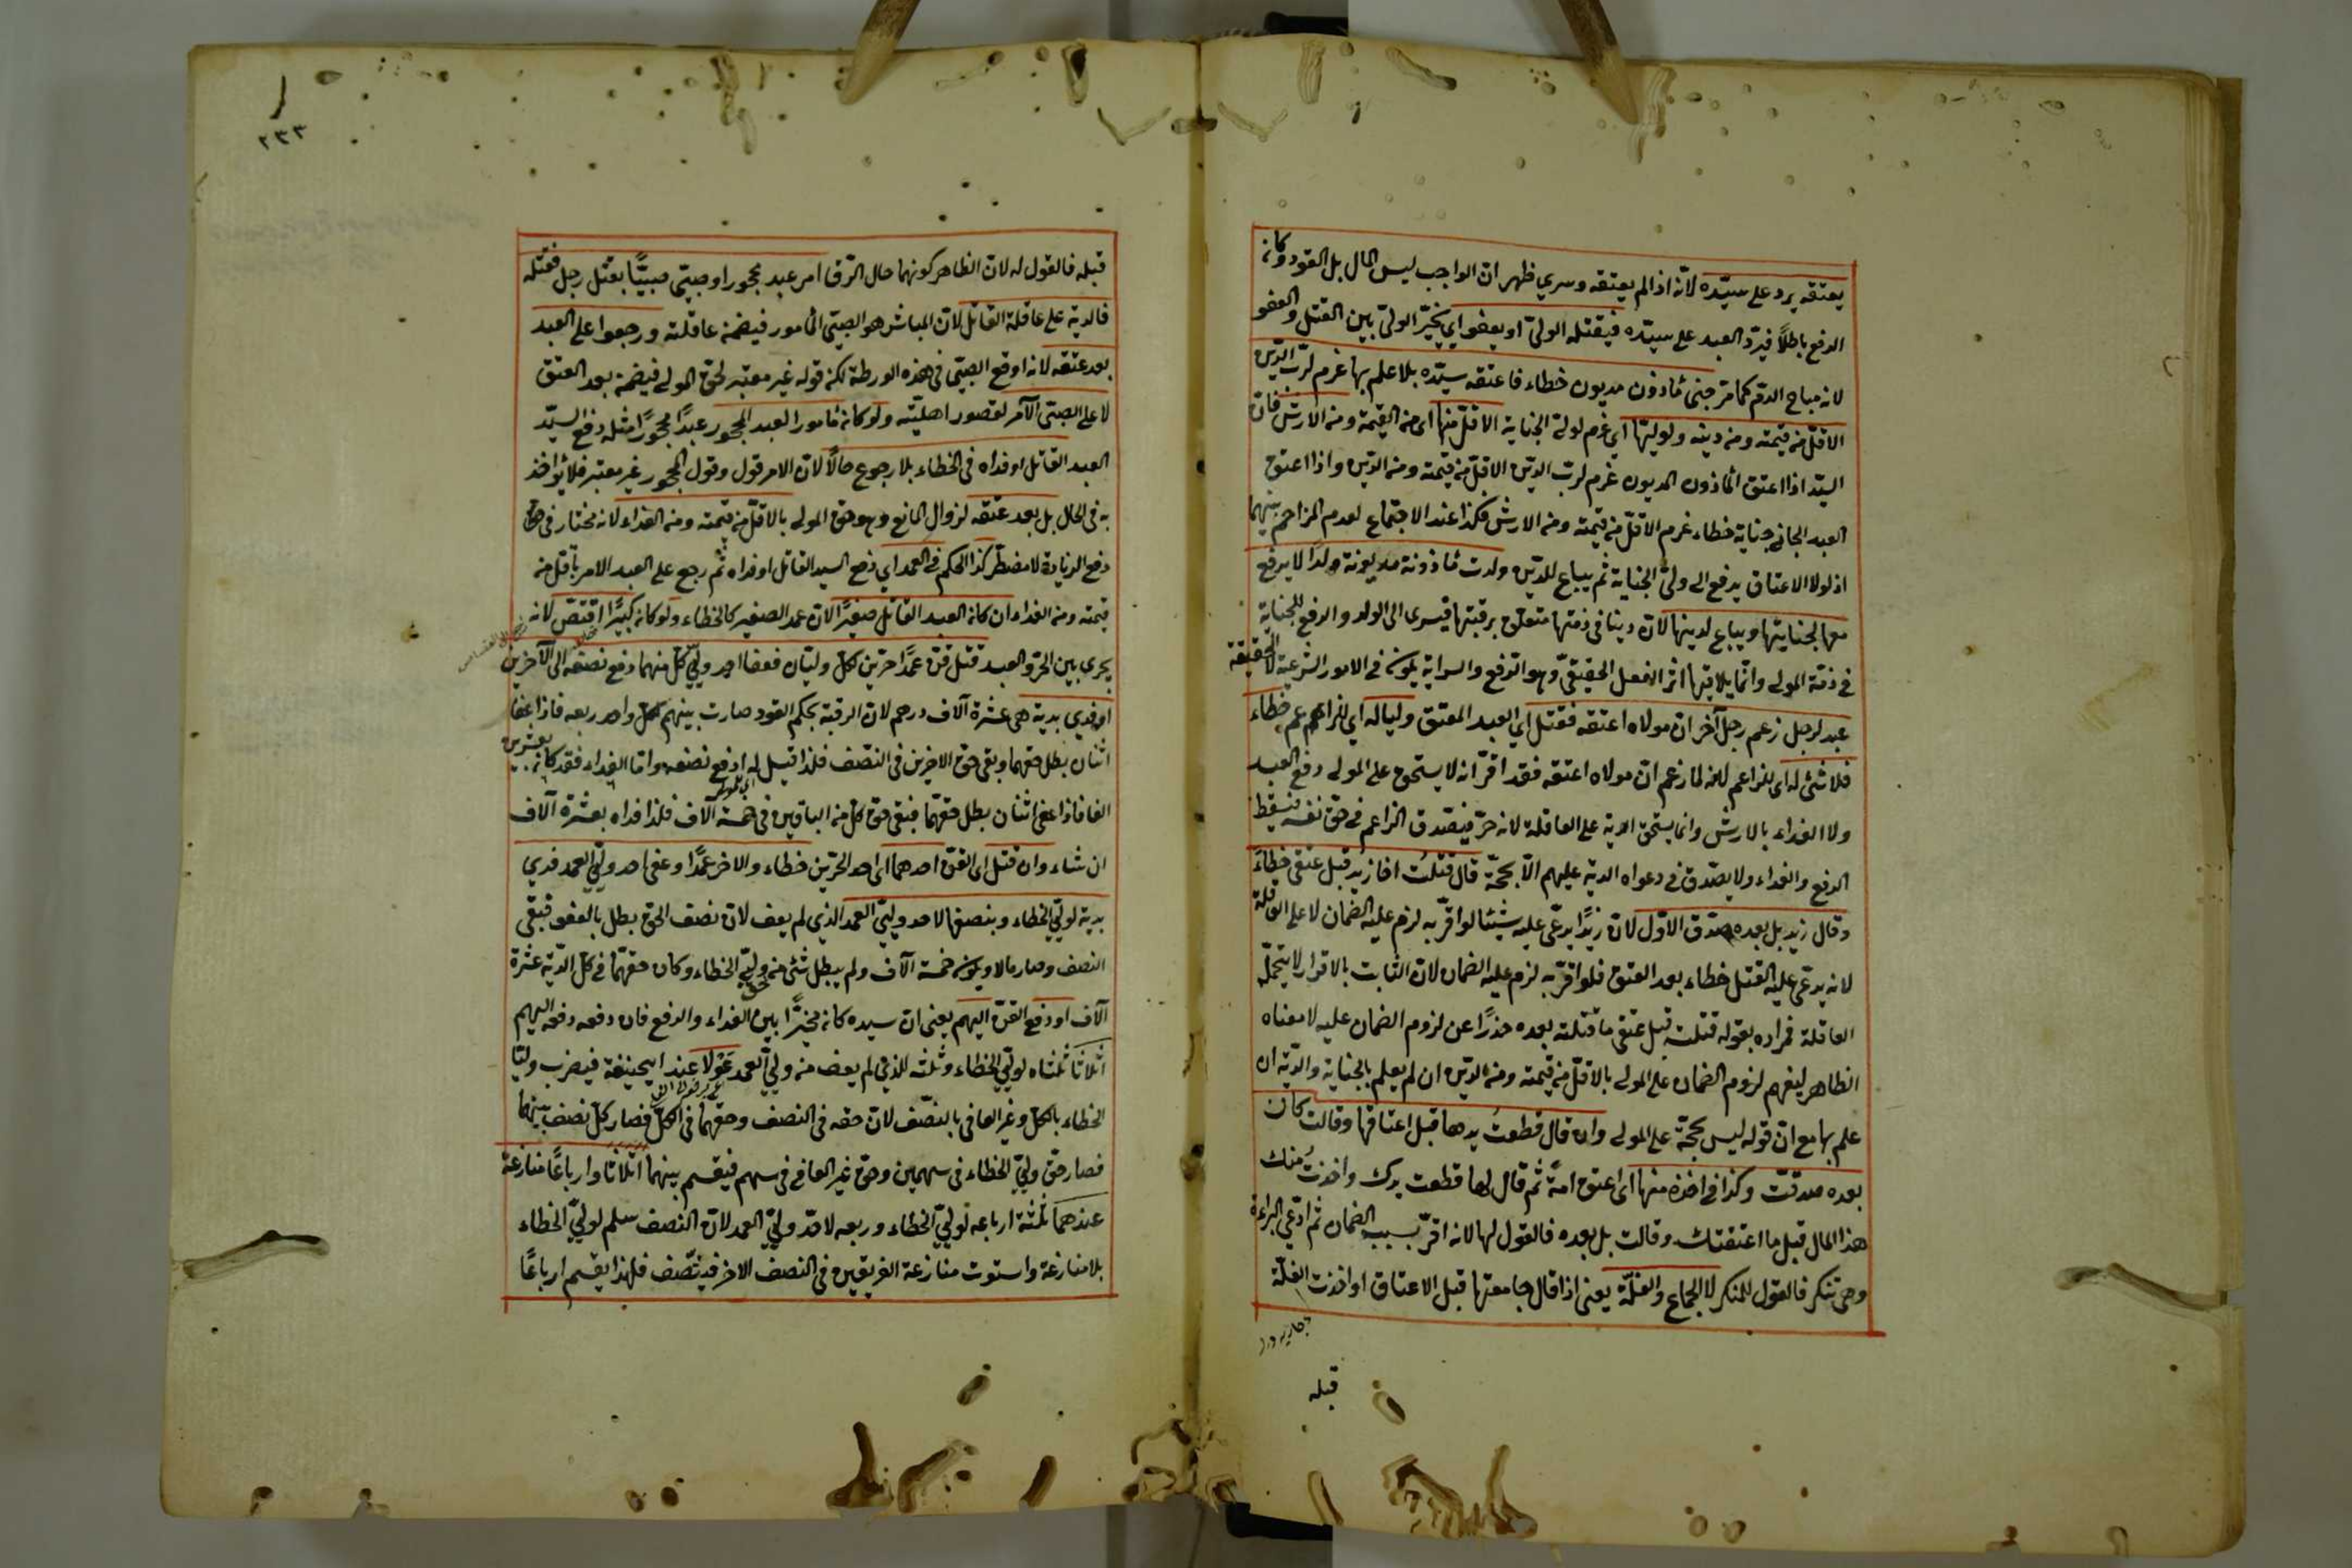 يعتقه يرد على سيّده لانّه اذا لم يعتقه وسري ظهر ان الواجب ليس المال بل القود وكان
الدفع باطلاً فيردّ العبد على سيّده فيقتله الوليّ او يعفو اي يخيّر الوليّ بين القتل والعفو
لانه مباح الدم كما مرّ جنى مأذون مديون خطاء فاعتقه سيّده بلا علم بها غرم لربّ الدّين
الاقلّ من قيمته ومن دينه ولوليّها اي غرم لولي الجناية الاقلّ منها اى من القيمة ومن الارش فان
السيّد اذا اعتق المأذون المديون غرم لربّ الدين الاقلّ من قيمته ومن الدّين واذا اعتق
العبد الجاني جناية خطاء غرم الاقلّ من قيمته ومن الارش فكذا عند الاجتماع لعدم المزاحم بينهما
اذ لولا الاعتاق يدفع الى وليّ الجناية ثم يباع للدّين ولدت مأذونة مديونة ولدًا لا يدفع
معها لجنايتها ويباع لدينها لان دينا في ذمّتها متعلّق برقبتها فيسرى الى الولد والدفع للجناية
في ذمّة المولى وانّما يلاقيها اثر الفعل الحقيقيّ وهو الدفع والسراية يكون في الامور الشرعية لا الحقيقة
عبد لرجل زعم رجل آخر ان مولاه اعتقه فقتل اي العبد المعتق وليا له اي للزاعم خطاء
فلا شئ له اى للزاعم لانه لما زعم ان مولاه اعتقه فقد اقرّ انه لا يستحق على المولى دفع العبد
ولا الفداء بالارش وانما يستحق الدية على العاقلة لانه حرّ فيصدق الزاعم في حق نفسه فيسقط
الدفع والفداء ولا يصدّق في دعواه الدية عليهم الّا بحجّة قال قتلت اخا زيد قبل عتقى خطاءً
وقال زيد بل بعده صدّق الاوّل لان زيدًا يدّعى عليه شيئا لو اقرّ به لزم عليه الضمان لا على العاقلة
لانه يدّعى عليه القتل خطاء بعد العتق فلو اقرّ به لزم عليه الضمان لان الثابت بالاقرار لا يتحمّله
العاقلة فمراده بقوله قتلت قبل عتقى ما قتلته بعده حذرًا عن لزوم الضمان عليه لا معناه
الظاهر ليفهم لزوم الضمان على المولى بالاقلّ من قيمته ومن الدّين ان لم يعلم بالجناية والدّية ان
علم بها مع ان قوله ليس بحجّة على المولى وان قال قطعت يدها قبل اعتاقها وقالت كان
بعده صدقت وكذا في اخذه منها اى اعتق امة ثم قال لها قطعت يدك واخذت منك
هذا المال قبل ما اعتقتك وقالت بل بعده فالقول لها لانه اقرّ بسبب الضمان ثم ادّعي البراءة
وهى تنكر فالقول للمنكر لا الجماع والغلّة يعنى اذا قال جامعتها قبل الاعتاق او اخذت الغلّة
قبله
٢٣٣
قبله فالقول له لان الظاهر كونهما حال الرق امر عبد محجور او صبيّ صبيًّا بقتل رجل فقتله
فالدية على عاقلة القاتل لان المباشر هو الصبيّ المأمور فيضمن عاقلته ورجعوا على العبد
بعد عتقه لانه اوقع الصبيّ في هذه الورطة لكن قوله غير معتبر لحق المولى فيضمن بعد العتق
لا على الصبيّ الآمر لقصور اهليّته ولو كان مأمور العبد المحجور عبدًا محجورًا مثله دفع السيّد
العبد القاتل او فداه في الخطاء بلا رجوع حالًا لان الامر قول وقول المحجور غير معتبر فلا يؤاخذ
به في الحال بل بعد عتقه لزوال المانع وهو حق المولى بالاقلّ من قيمته ومن الفداء لانه مختار في حق
دفع الزيادة لا مضطر كذا الحكم في العمد اي دفع السيد القاتل او فداه ثم رجع على العبد الامر باقل من
قيمته ومن الفداء ان كان العبد القاتل صغيرًا لان عمد الصغير كالخطاء ولو كان كبيرًا اقتصّ لانه
يجرى بين الحرّ والعبد قتل قنّ عمدًا حرّين لكلّ وليّان فعفا احد وليّي كلّ منهما دفع نصفه الى الآخرين
او فدي بدية هى عشرة آلاف درهم لان الرقبة بحكم القود صارت بينهم لكلّ واحد ربعه فاذا عفا
اثنان بطل حقهما وبقى حق الاخرين في النّصف فلذا قيل له ادفع نصفه واما الفداء فقد كان بعشرين
الفا فاذا عفى اثنان بطل حقهما فبقى حق كل من الباقين في خمسة آلاف فلذا فداه بعشرة آلاف
ان شاء وان قتل اى القنّ احدهما اى احد الحرّين خطاء والاخر عمدًا وعفى احد وليّي العمد فدي
بدية لوليّ الخطاء وبنصفها لاحد وليّي العمد الذي لم يعف لان نصف الحق بطل بالعفو فبقى
النصف وصار مالا ويكون خمسة آلاف ولم يبطل شئ من حق وليّي الخطاء وكان حقهما في كلّ الدّية عشرة
آلاف او دفع القنّ اليهم يعنى ان سيده كان مخيّرًا بين الفداء والدفع فان دفعه دفعه اليهم
اثلاثا ثلثاه لوليّي الخطاء وثلثه للذي لم يعف من وليّي العمد عولا عند ابيحنيفة فيضرب وليّا
الخطاء بالكلّ وغير العافى بالنصف لان حقه في النصف وحقهما في الكل فصار كل نصف بينهما
فصار حق وليّي الخطاء فى سهمين وحق غير العافى فى سهم فيقسم بينهما اثلاثا وارباعًا منازعة
عندهما ثلثة ارباعه لوليّي الخطاء وربعه لاحد وليّي العمد لان النصف سلم لوليّي الخطاء
بلا منازعة واستوت منازعة الفريقين في النصف الاخر فينصّف فلهذا يقسم ارباعًا